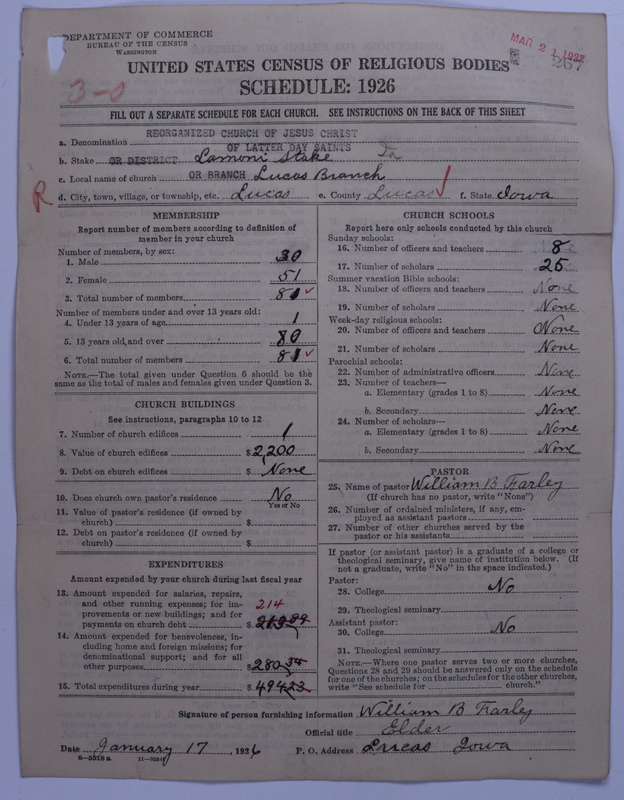 DEPARTMENT OF COMMERCE
BUREAU OF THE CENSUS
WASHINGTON
MAR 21 1927
267
UNITED STATES CENSUS OF RELIGIOUS BODIES
3-0
SCHEDULE: 1926
FILL OUT A SEPARATE SCHEDULE FOR EACH CHURCH. SEE INSTRUCTIONS ON THE BACK OF THIS SHEET
REORGANIZED CHURCH OF JESUS CHRIST
a. Denomination
OF LATTER DAY SAINTS
b. Stake OR DISTRICT Lamoni Stake Ia
c. Local name of church OR BRANCH Lucas Branch
R
d. City, town, village, or township, etc. Lucas e. County Lucas f. State Iowa
MEMBERSHIP
Report number of members according to definition of
member in your church
Number of members, by sex:
1. Male 30
2. Female 51
3. Total number of members 81
Number of members under and over 13 years old:
4. Under 13 years of age 1
5. 13 years old and over 80
6. Total number of members 81
NOTE.—The total given under Question 6 should be the
same as the total of males and females given under Question 3.
CHURCH BUILDINGS
See instructions, paragraphs 10 to 12
7. Number of church edifices 1
8. Value of church edifices $ 2,200
9. Debt on church edifices $ None
10. Does church own pastor's residence No
Yes or No
11. Value of pastor's residence (if owned by
church) $
12. Debt on pastor's residence (if owned by
church) $
EXPENDITURES
Amount expended by your church during last fiscal year
13. Amount expended for salaries, repairs,
and other running expenses; for im-
provements or new buildings; and for
214
payments on church debt $ 213.89
14. Amount expended for benevolences, in-
cluding home and foreign missions; for
denominational support; and for all
other purposes $ 280.34
15. Total expenditures during year $ 494.23
CHURCH SCHOOLS
Report here only schools conducted by this church
Sunday schools:
16. Number of officers and teachers 8
17. Number of scholars 25
Summer vacation Bible schools:
18. Number of officers and teachers None
19. Number of scholars None
Week-day religious schools:
20. Number of officers and teachers None
21. Number of scholars None
Parochial schools:
22. Number of administrative officers None
23. Number of teachers—
a. Elementary (grades 1 to 8) None
b. Secondary None
24. Number of scholars—
a. Elementary (grades 1 to 8) None
b. Secondary None
PASTOR
25. Name of pastor William B Farley
(If church has no pastor, write "None")
26. Number of ordained ministers, if any, em-
ployed as assistant pastors
27. Number of other churches served by the
pastor or his assistants
If pastor (or assistant pastor) is a graduate of a college or
theological seminary, give name of institution below. (If
not a graduate, write "No" in the space indicated.)
Pastor:
28. College No
29. Theological seminary
Assistant pastor:
30. College No
31. Theological seminary
NOTE.—Where one pastor serves two or more churches,
Questions 28 and 29 should be answered only on the schedule
for one of the churches; on the schedules for the other churches,
write "See schedule for church."
Signature of person furnishing information William B Farley
Official title Elder
Date January 17, 1926 P. O. Address Lucas Iowa